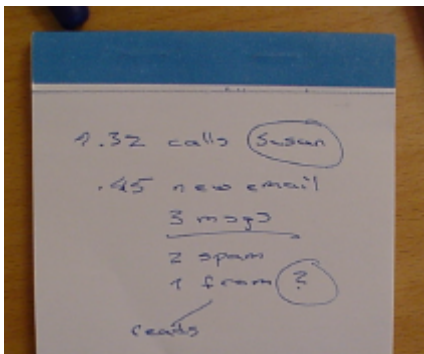 1.32 calls Susan
.45 new email
3 msgs
2 spam
1 from ?
reads